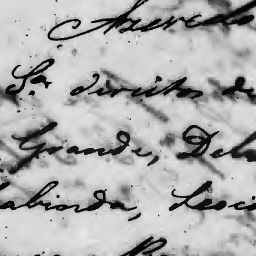 Azevedo
Sª direitos de
Grande, Del
Cabinda, Leoc